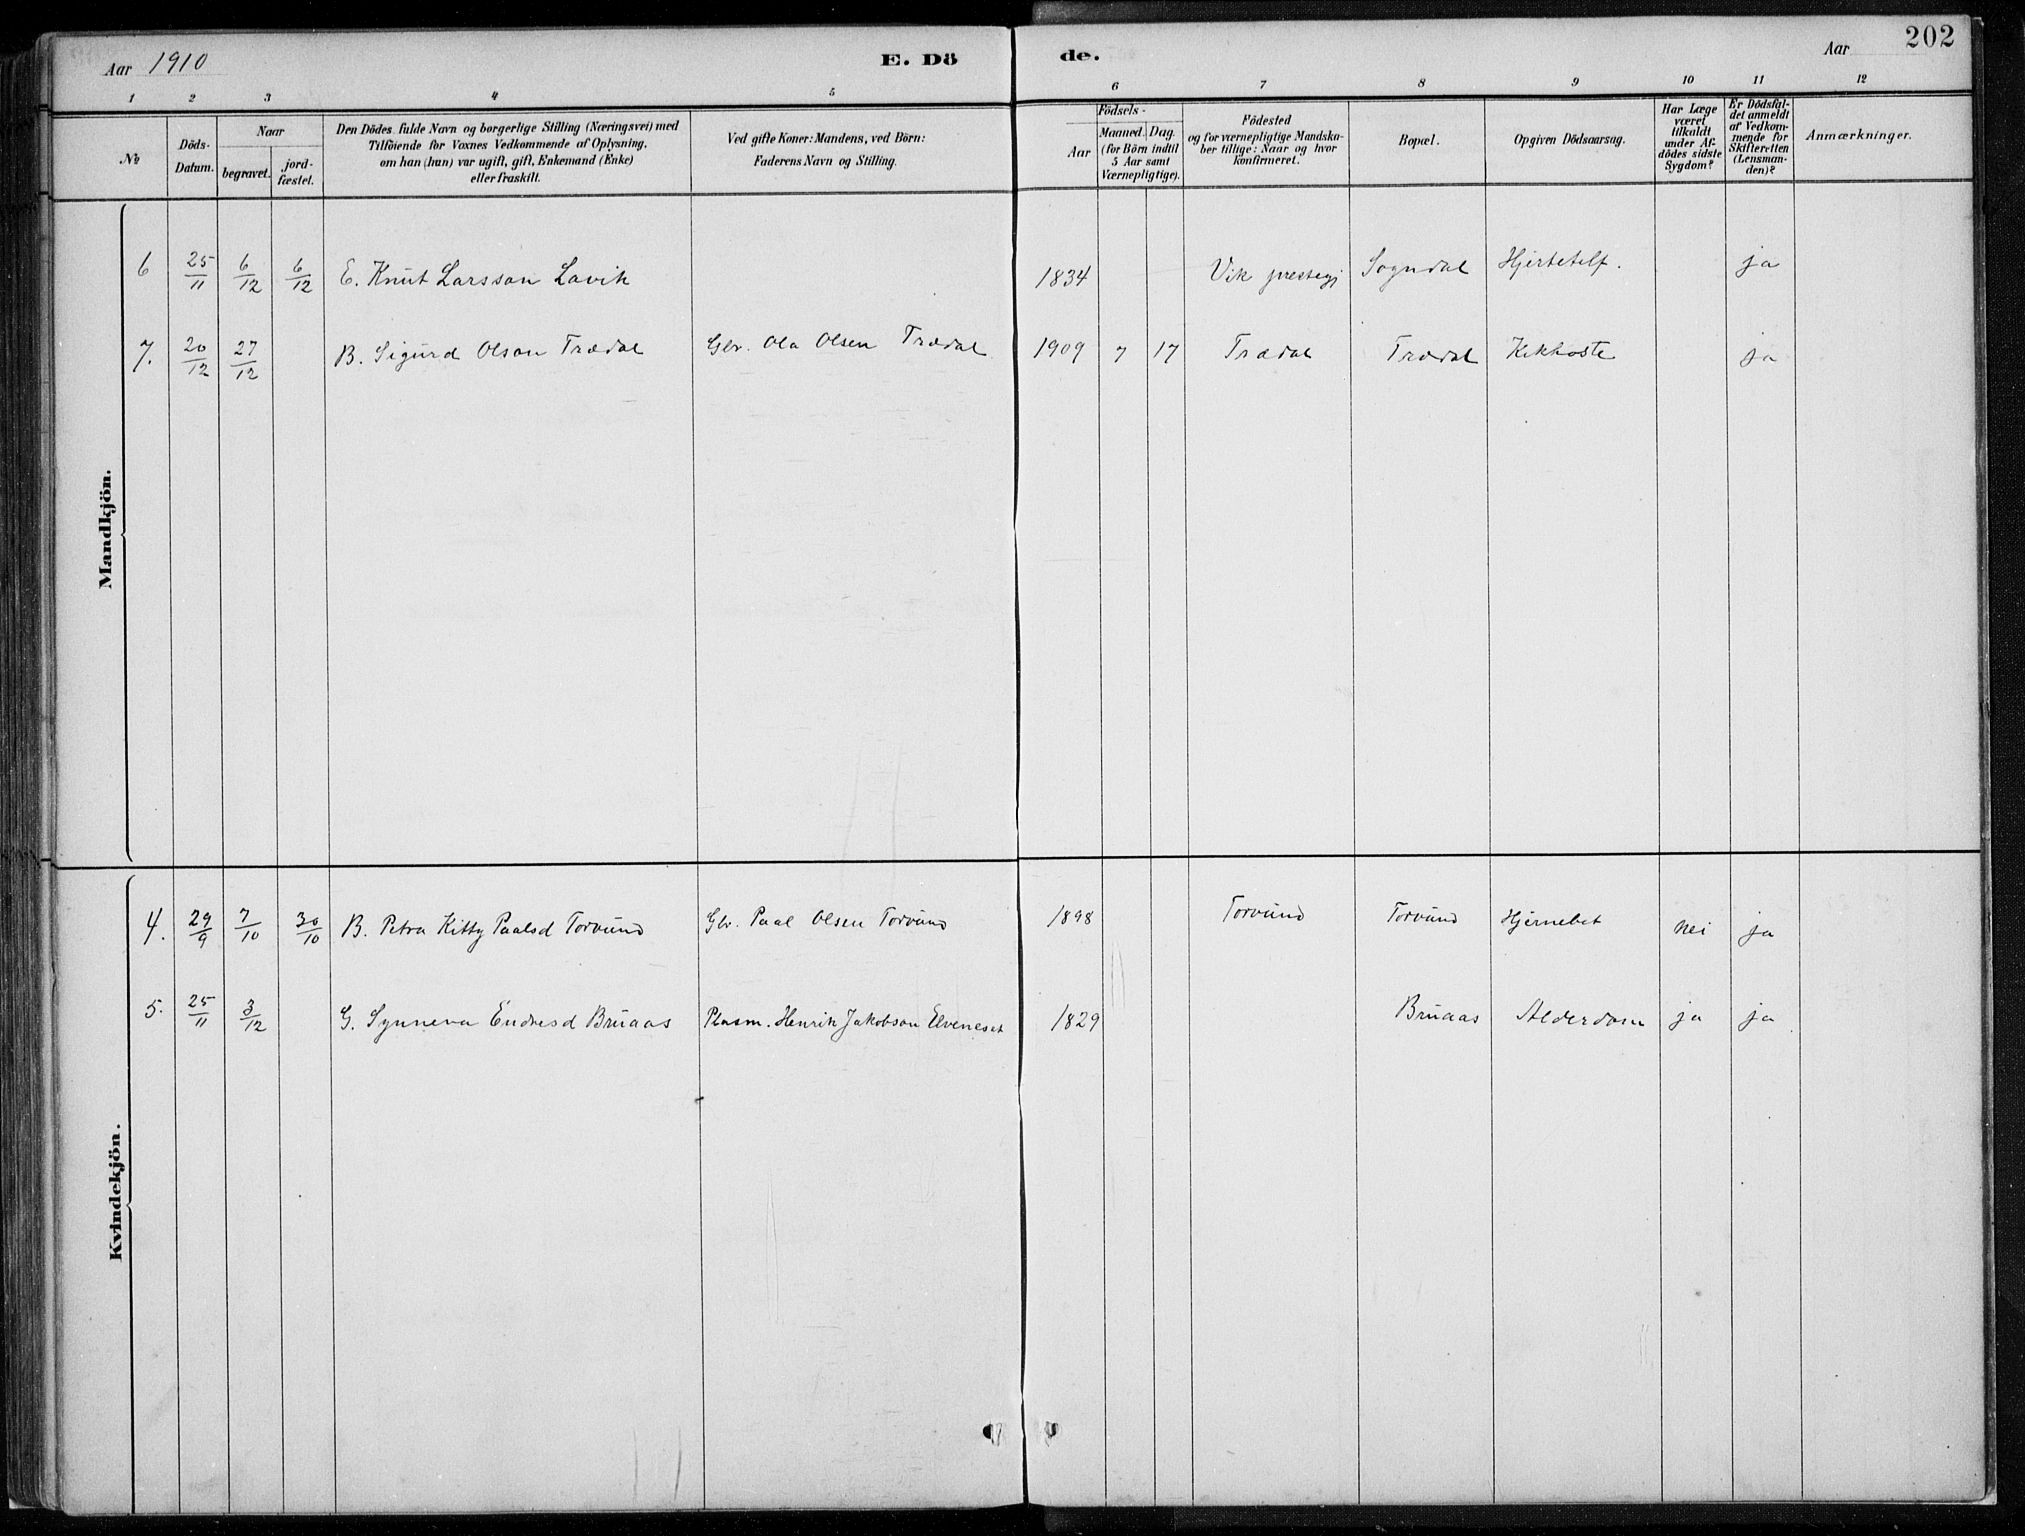 Aar 1910 E. Dö de. Aar 202
1 2 3 4 5 6 7 8 9 10 11 12
No
Döds-Datum.
Naar
begravet.
jord-fæstet.
Den Dödes fulde Navn og borgerlige Stilling (Næringsvei) med
Tilföiende for Voxnes Vedkommende af Oplysning,
om han (hun) var ugift, gift, Enkemand (Enke)
eller fraskilt.
Ved gifte Koner: Mandens, ved Börn:
Faderens Navn og Stilling.
Födsels-
Aar
Maaned. Dag.
(for Börn indtil
5 Aar samt
Værnepligtige).
Födested
og for værnepligtige Mandska-
ber tillige: Naar og hvor
konfirmeret.
Bopæl.
Opgiven Dödsaarsag.
Har Læge
været
tilkaldt
under Af-
dödes sidste
Sygdom?
Er Dödsfal-
det anmeldt
af Vedkom-
mende for
Skifteretten
(Lensman-
den)?
Anmærkninger.
Mandkjön.
6 25/11 6/12 6/12 E. Knut Larsson Lavik 1834 Vik prestegj Sogndal Hjertetelf. ja
7. 20/12 27/12 B. Sigurd Olson Trædal Gbr. Ola Olsen Trædal 1909 7 17 Trædal Trædal Kikhoste ja
Kvindekjön.
4. 29/9 7/10 30/10 B. Petra Kitty Paalsd Torvund Gbr. Paal Olsen Torvund 1898 Torvund Torvund Hjernebet nei ja
5. 25/11 3/12 G. Synneva Endresd Bruaas Plasm. Henrik Jakobson Elveneset 1829 Bruaas Alderdom ja ja